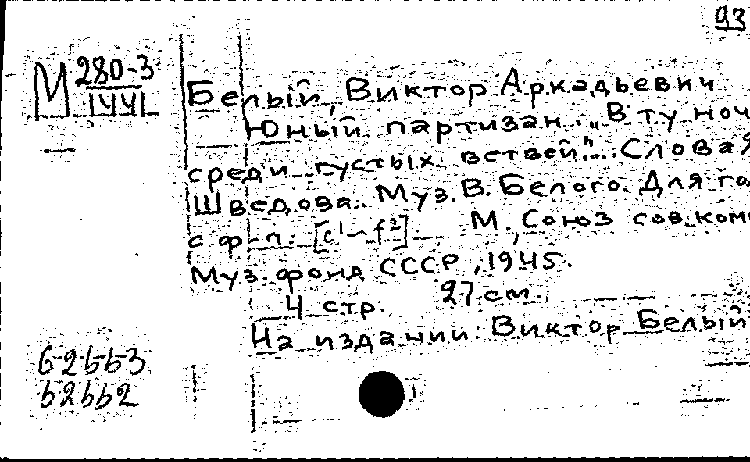 93
М 280-3
1441
Белый, Виктор Аркадьевич
Юный партизан. „В ту ноч
среди густых ветвей"... Слова Я
Шведова. Муз. В. Белого. Для го
с ф-п. [c¹-f²] М., Союз сов. комп
Муз. фонд СССР, 1945.
4 стр. 27 см.
На издании: Виктор Белый
62663
62662